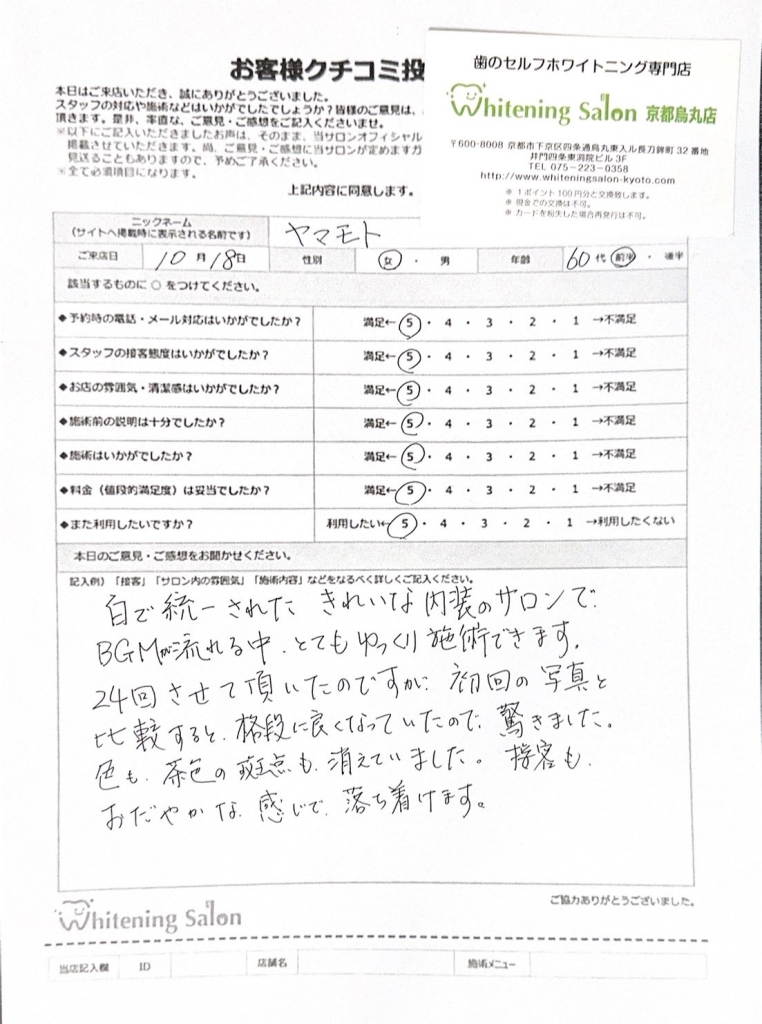 お客様クチコミ投
本日はご来店いただき、誠にありがとうございました。
スタッフの対応や施術などはいかがでしたでしょうか?皆様のご意見は、
頂きます。是非、率直な、ご意見・ご感想をご記入くださいませ。
※以下にご記入いただきましたお声は、そのまま、当サロンオフィシャル
掲載させていただきます。尚、ご意見・ご感想に当サロンが定めますガ
見送ることもありますので、予めご了承ください。
※全て必須項目になります。
上記内容に同意します。
歯のセルフホワイトニング専門店
Whitening Salon 京都烏丸店
〒600-8008 京都市下京区四条通烏丸東入ル長刀鉾町 32 番地
井門四条東洞院ビル 3F
TEL 075-223-0358
http://www.whiteningsalon-kyoto.com
※ 1ポイント100円分と交換致します。
※ 現金での交換は不可。
※ カードを紛失した場合再発行は不可。
ニックネーム
(サイトへ掲載時に表示される名前です)
ヤマモト
ご来店日 10月18日 性別 女・男 年齢 60代 前半・後半
該当するものに○をつけてください。
◆予約時の電話・メール対応はいかがでしたか? 満足← 5・4・3・2・1 →不満足
◆スタッフの接客態度はいかがでしたか? 満足← 5・4・3・2・1 →不満足
◆お店の雰囲気・清潔感はいかがでしたか? 満足← 5・4・3・2・1 →不満足
◆施術前の説明は十分でしたか? 満足← 5・4・3・2・1 →不満足
◆施術はいかがでしたか? 満足← 5・4・3・2・1 →不満足
◆料金(値段的満足度)は妥当でしたか? 満足← 5・4・3・2・1 →不満足
◆また利用したいですか? 利用したい← 5・4・3・2・1 →利用したくない
本日のご意見・ご感想をお聞かせください。
記入例)「接客」「サロン内の雰囲気」「施術内容」などをなるべく詳しくご記入ください。
白で統一された きれいな内装のサロンで、
BGMが流れる中、とてもゆっくり施術できます。
24回させて頂いたのですが、初回の写真と
比較すると、格段に良くなっていたので、驚きました。
色も、茶色の斑点も、消えていました。接客も、
おだやかな感じで、落ち着けます。
Whitening Salon
ご協力ありがとうございました。
当店記入欄 ID 店舗名 施術メニュー